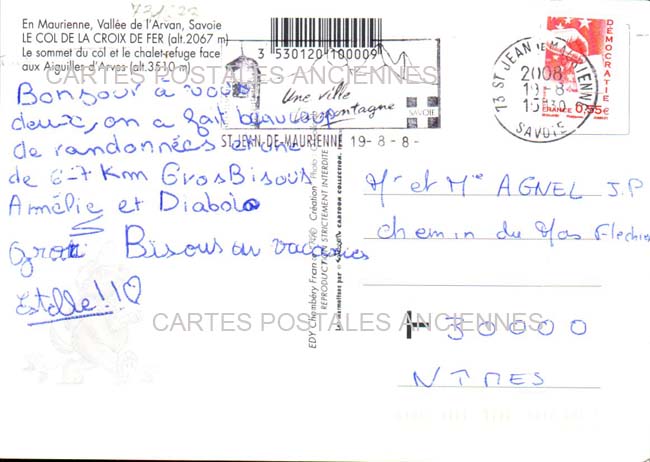 73/522
En Maurienne, Vallée de l'Arvan, Savoie
LE COL DE LA CROIX DE FER (alt.2067 m)
Le sommet du col et le chalet-refuge face
aux Aiguilles d'Arves (alt.3510 m)
3 530120 100009
CARTES POSTALES ANCIENNES
Une ville
montagne
SAVOIE
ST-JEAN-DE-MAURIENNE 19-8-8-
73 ST JEAN DE MAURIENNE
2008
19-8-
15H30
SAVOIE
DÉMOCRATIE
FRANCE 0,55€
Bonsour à vous
deux, on a fait beaucoup
de randonnées
de 6-7 Km Gros Bisous
Amélie et Diabolo
Gros Bisous au vacances
Estelle!!♡
EDY Chambéry France
Création
REPRODUCTION STRICTEMENT INTERDITE
CARTOON COLLECTION
Mr et Mme AGNEL J.P
chemin du Mas
CARTES POSTALES ANCIENNES
30000
NIMES